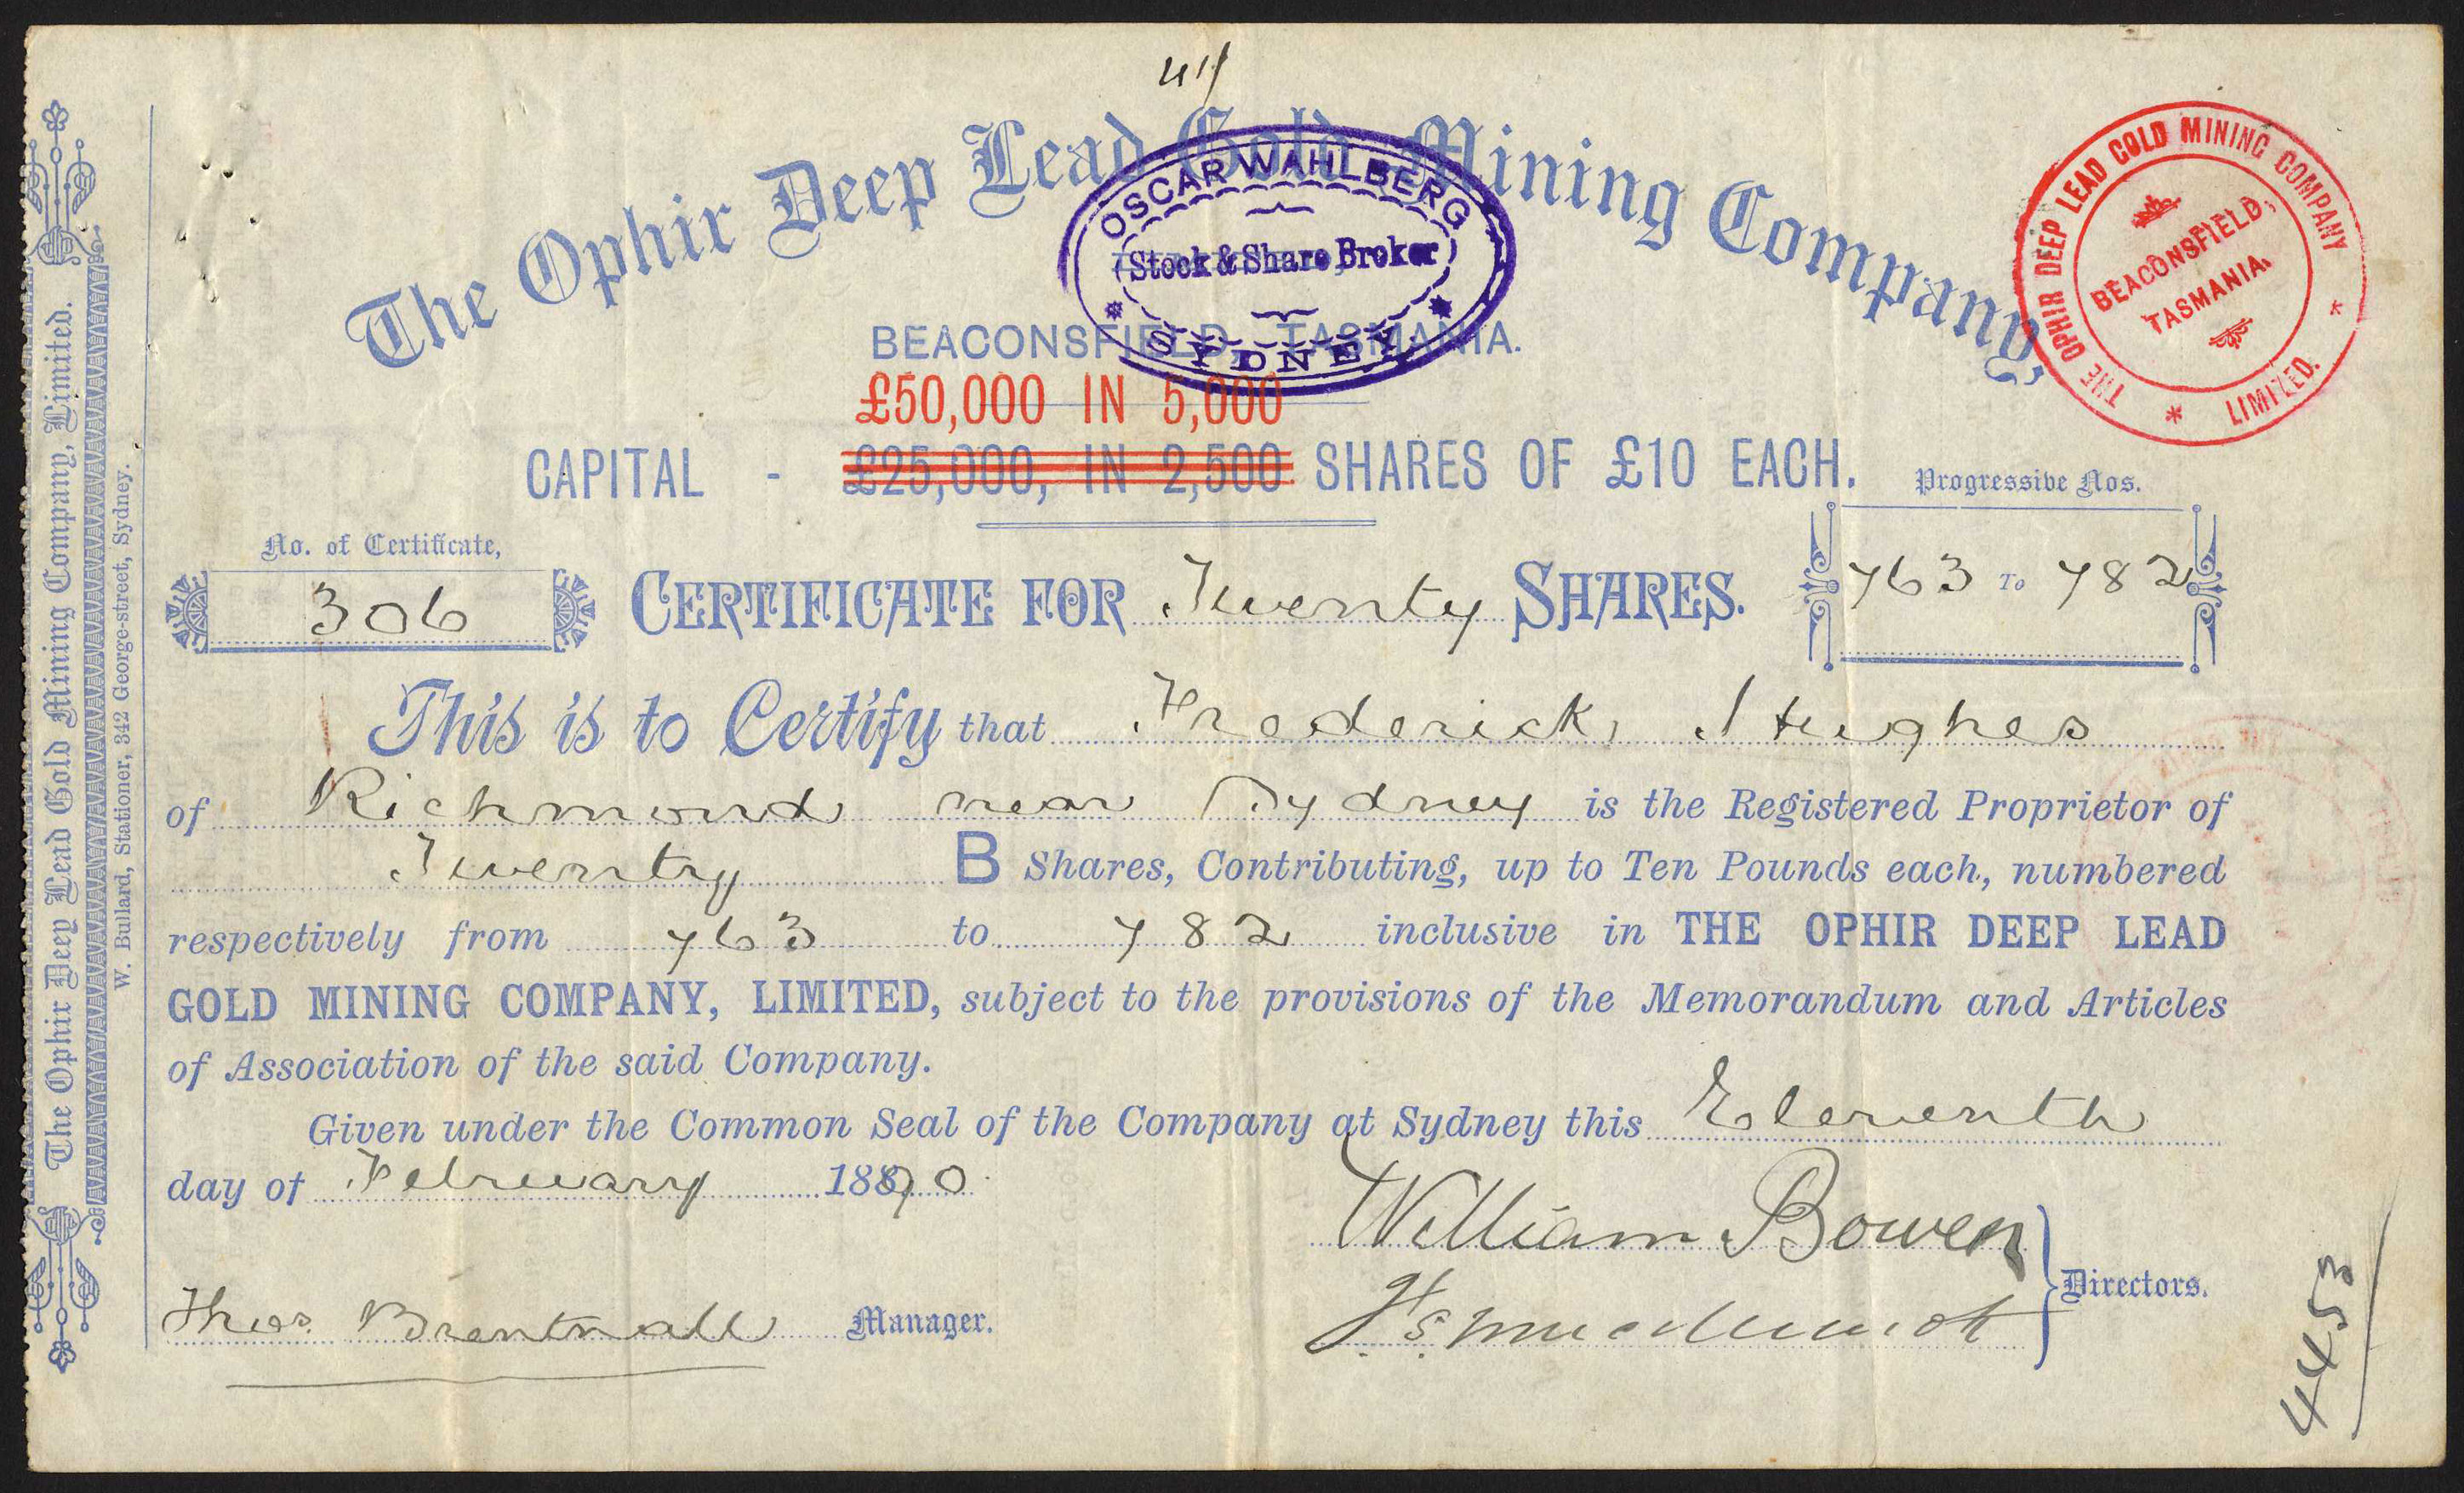 The Ophir Deep Lead Gold Mining Company,
OSCAR WAHLBERG
Stock & Share Broker
SYDNEY
THE OPHIR DEEP LEAD GOLD MINING COMPANY
LIMITED.
BEACONSFIELD,
TASMANIA.
BEACONSFIELD, TASMANIA.
£50,000 IN 5,000
CAPITAL - £25,000, IN 2,500 SHARES OF £10 EACH.
Progressive Nos.
763 To 782
No. of Certificate,
306
CERTIFICATE FOR Twenty SHARES.
This is to Certify that Frederick J Hughes
of Richmond near Sydney is the Registered Proprietor of
Twenty B Shares, Contributing, up to Ten Pounds each, numbered
respectively from 763 to 782 inclusive in THE OPHIR DEEP LEAD
GOLD MINING COMPANY, LIMITED, subject to the provisions of the Memorandum and Articles
of Association of the said Company.
Given under the Common Seal of the Company at Sydney this Eleventh
day of February 1890
William Bowen
Directors.
Thos. Brentnall Manager.
4453
The Ophir Deep Lead Gold Mining Company, Limited.
W. Bullard, Stationer, 342 George-street, Sydney.